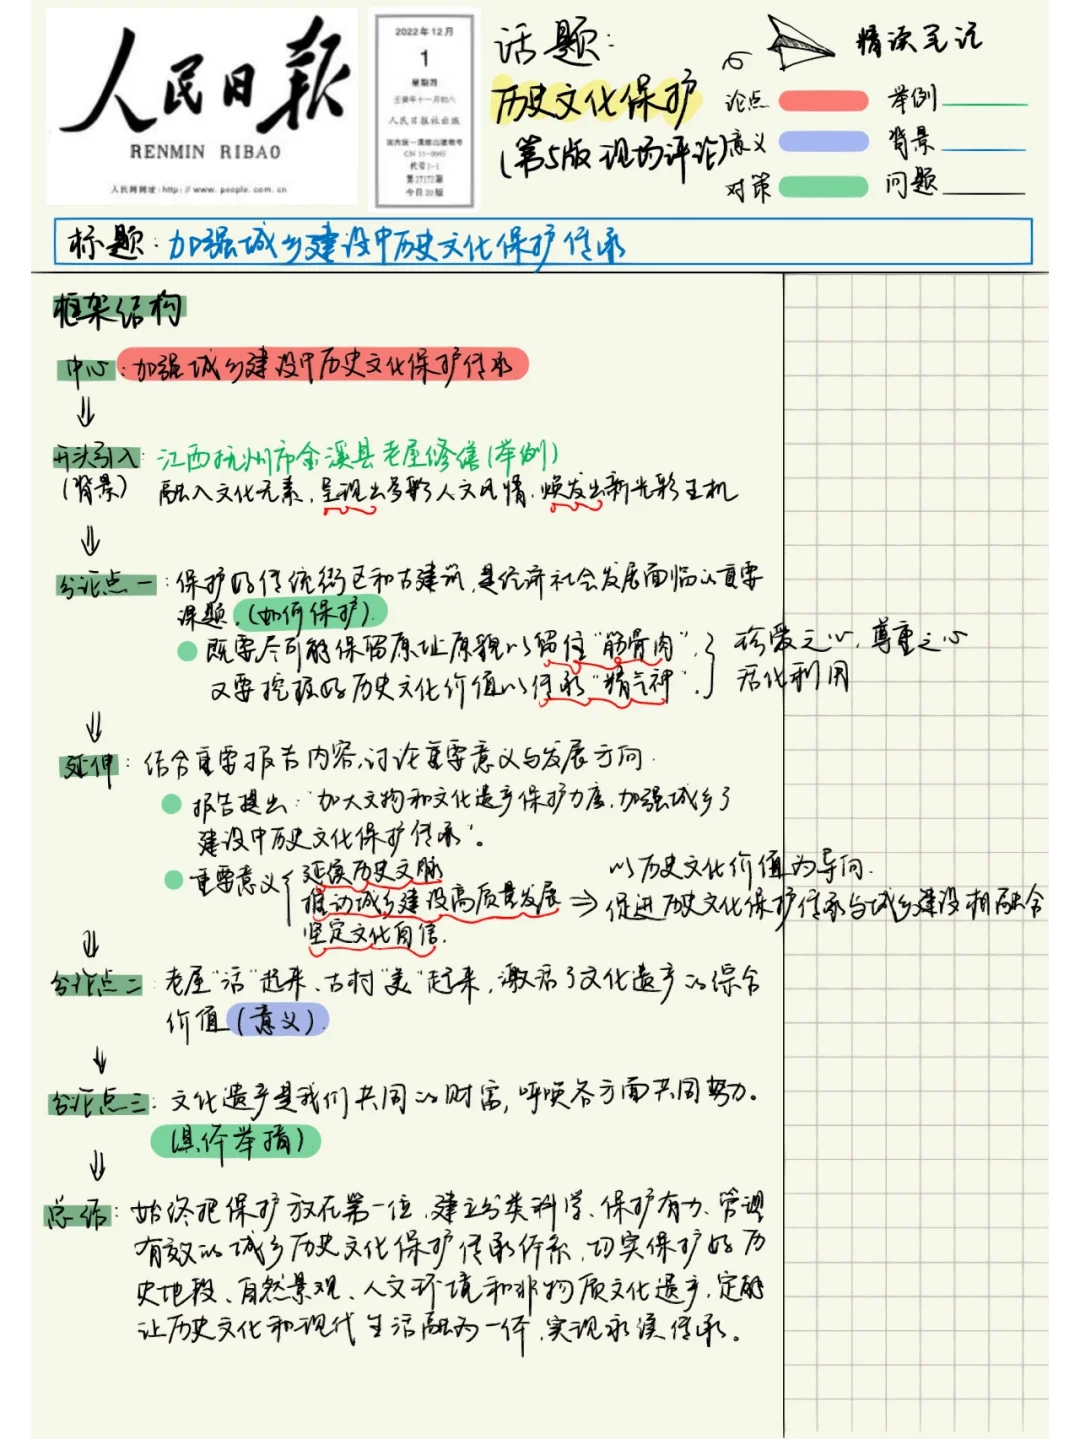 人民日报
RENMIN RIBAO
人民网网址:http://www.people.com.cn
2022年12月
1
星期四
壬寅年十一月初八
人民日报社出版
国内统一连续出版物号
CN 11-0065
代号1-1
第27172期
今日20版
话题:
历史文化保护
(第5版 现场评论)
精读笔记
论点
举例
意义
背景
对策
问题
标题:加强城乡建设中历史文化保护传承
框架结构
中心:加强城乡建设中历史文化保护传承
开头引入:江西抚州市金溪县老屋修缮(举例)
(背景) 融入文化元素,呈现出多彩人文风情,焕发出新光彩生机
分论点一:保护好传统街区和古建筑,是经济社会发展面临的重要
课题.(如何保护)
既要尽可能保留原址原貌以留住“筋骨肉”,
又要挖掘好历史文化价值以传承“精气神”.
珍爱之心,尊重之心
活化利用
延伸:结合重要报告内容,讨论重要意义与发展方向.
报告提出:“加大文物和文化遗产保护力度,加强城乡
建设中历史文化保护传承”。
重要意义
延续历史文脉
推动城乡建设高质量发展
坚定文化自信.
⇒
以历史文化价值为导向.
促进历史文化保护传承与城乡建设相融合
分论点二:老屋“活”起来、古村“美”起来,激活了文化遗产的综合
价值(意义).
分论点三:文化遗产是我们共同的财富,呼唤各方面共同努力。
(具体举措)
总结:始终把保护放在第一位,建立分类科学、保护有力、管理
有效的城乡历史文化保护传承体系,切实保护好历
史地段、自然景观、人文环境和非物质文化遗产,定能
让历史文化和现代生活融为一体,实现永续传承。